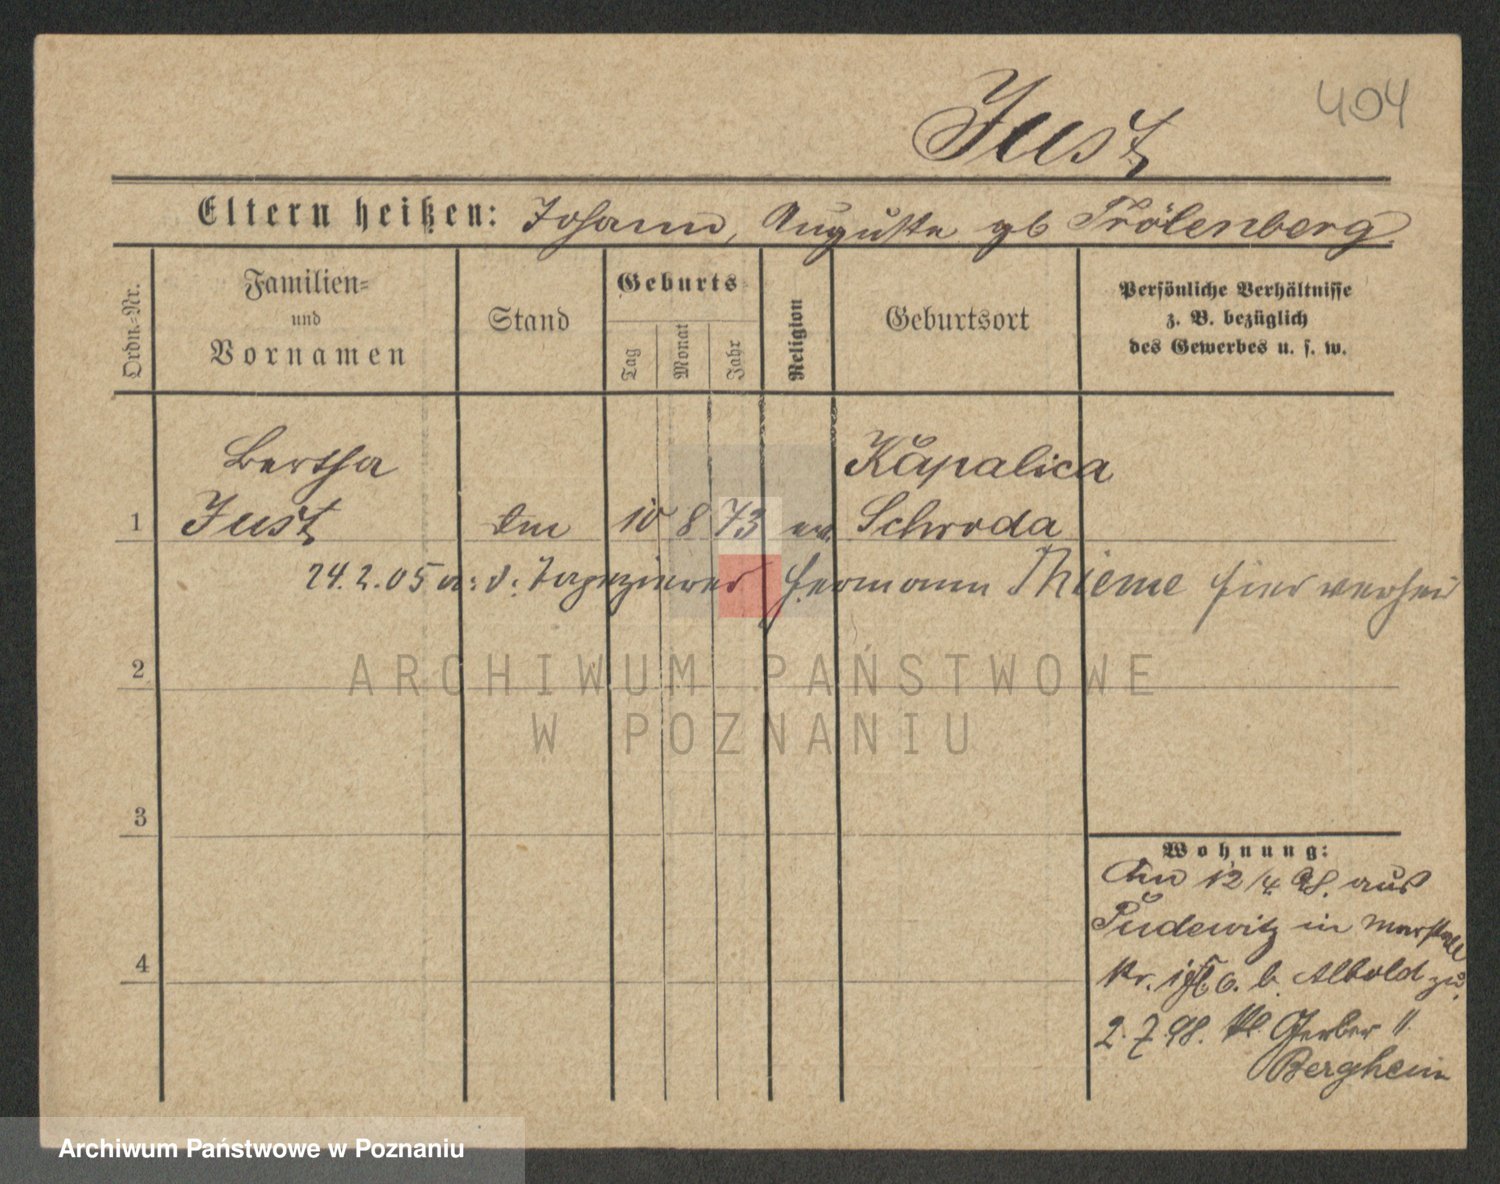 404
Just
Eltern heißen: Johann, Auguste gb Trölenberg.
Ordn.-Nr.
Familien-
und
Vornamen
Stand
Geburts
Tag
Monat
Jahr
Religion
Geburtsort
Persönliche Verhältnisse
z. B. bezüglich
des Gewerbes u. s. w.
Bertha
Kapalica
1 Just 10 8 73 ev. Schroda
24.2.05 a: d: Tapezierer Hermann Thieme hier verhei
2
ARCHIWUM PAŃSTWOWE
W POZNANIU
3
Wohnung:
12/4 98. aus
Pudewitz in Marstall
b. Albold zu.
4
2.7.98. Kl Gerber 11
Berghein
Archiwum Państwowe w Poznaniu